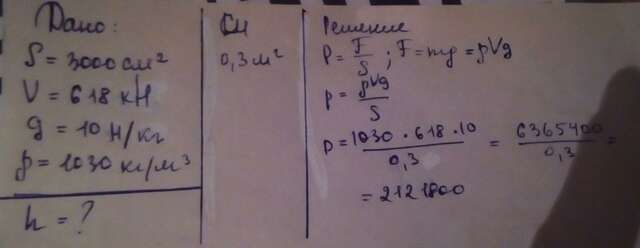 Дано:
S = 3000 см²
V = 618 кН
g = 10 Н/кг
ρ = 1030 кг/м³
h = ?
СИ
0,3 м²
Решение
P = F/S ; F = mg = ρVg
p = ρVg/S
p = 1030 · 618 · 10/0,3 = 6365400/0,3 =
= 2121800